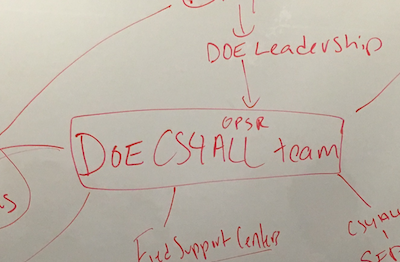 DOE Leadership
OPSR
DOE CS4ALL team
Field Support Centers
CS4ALL